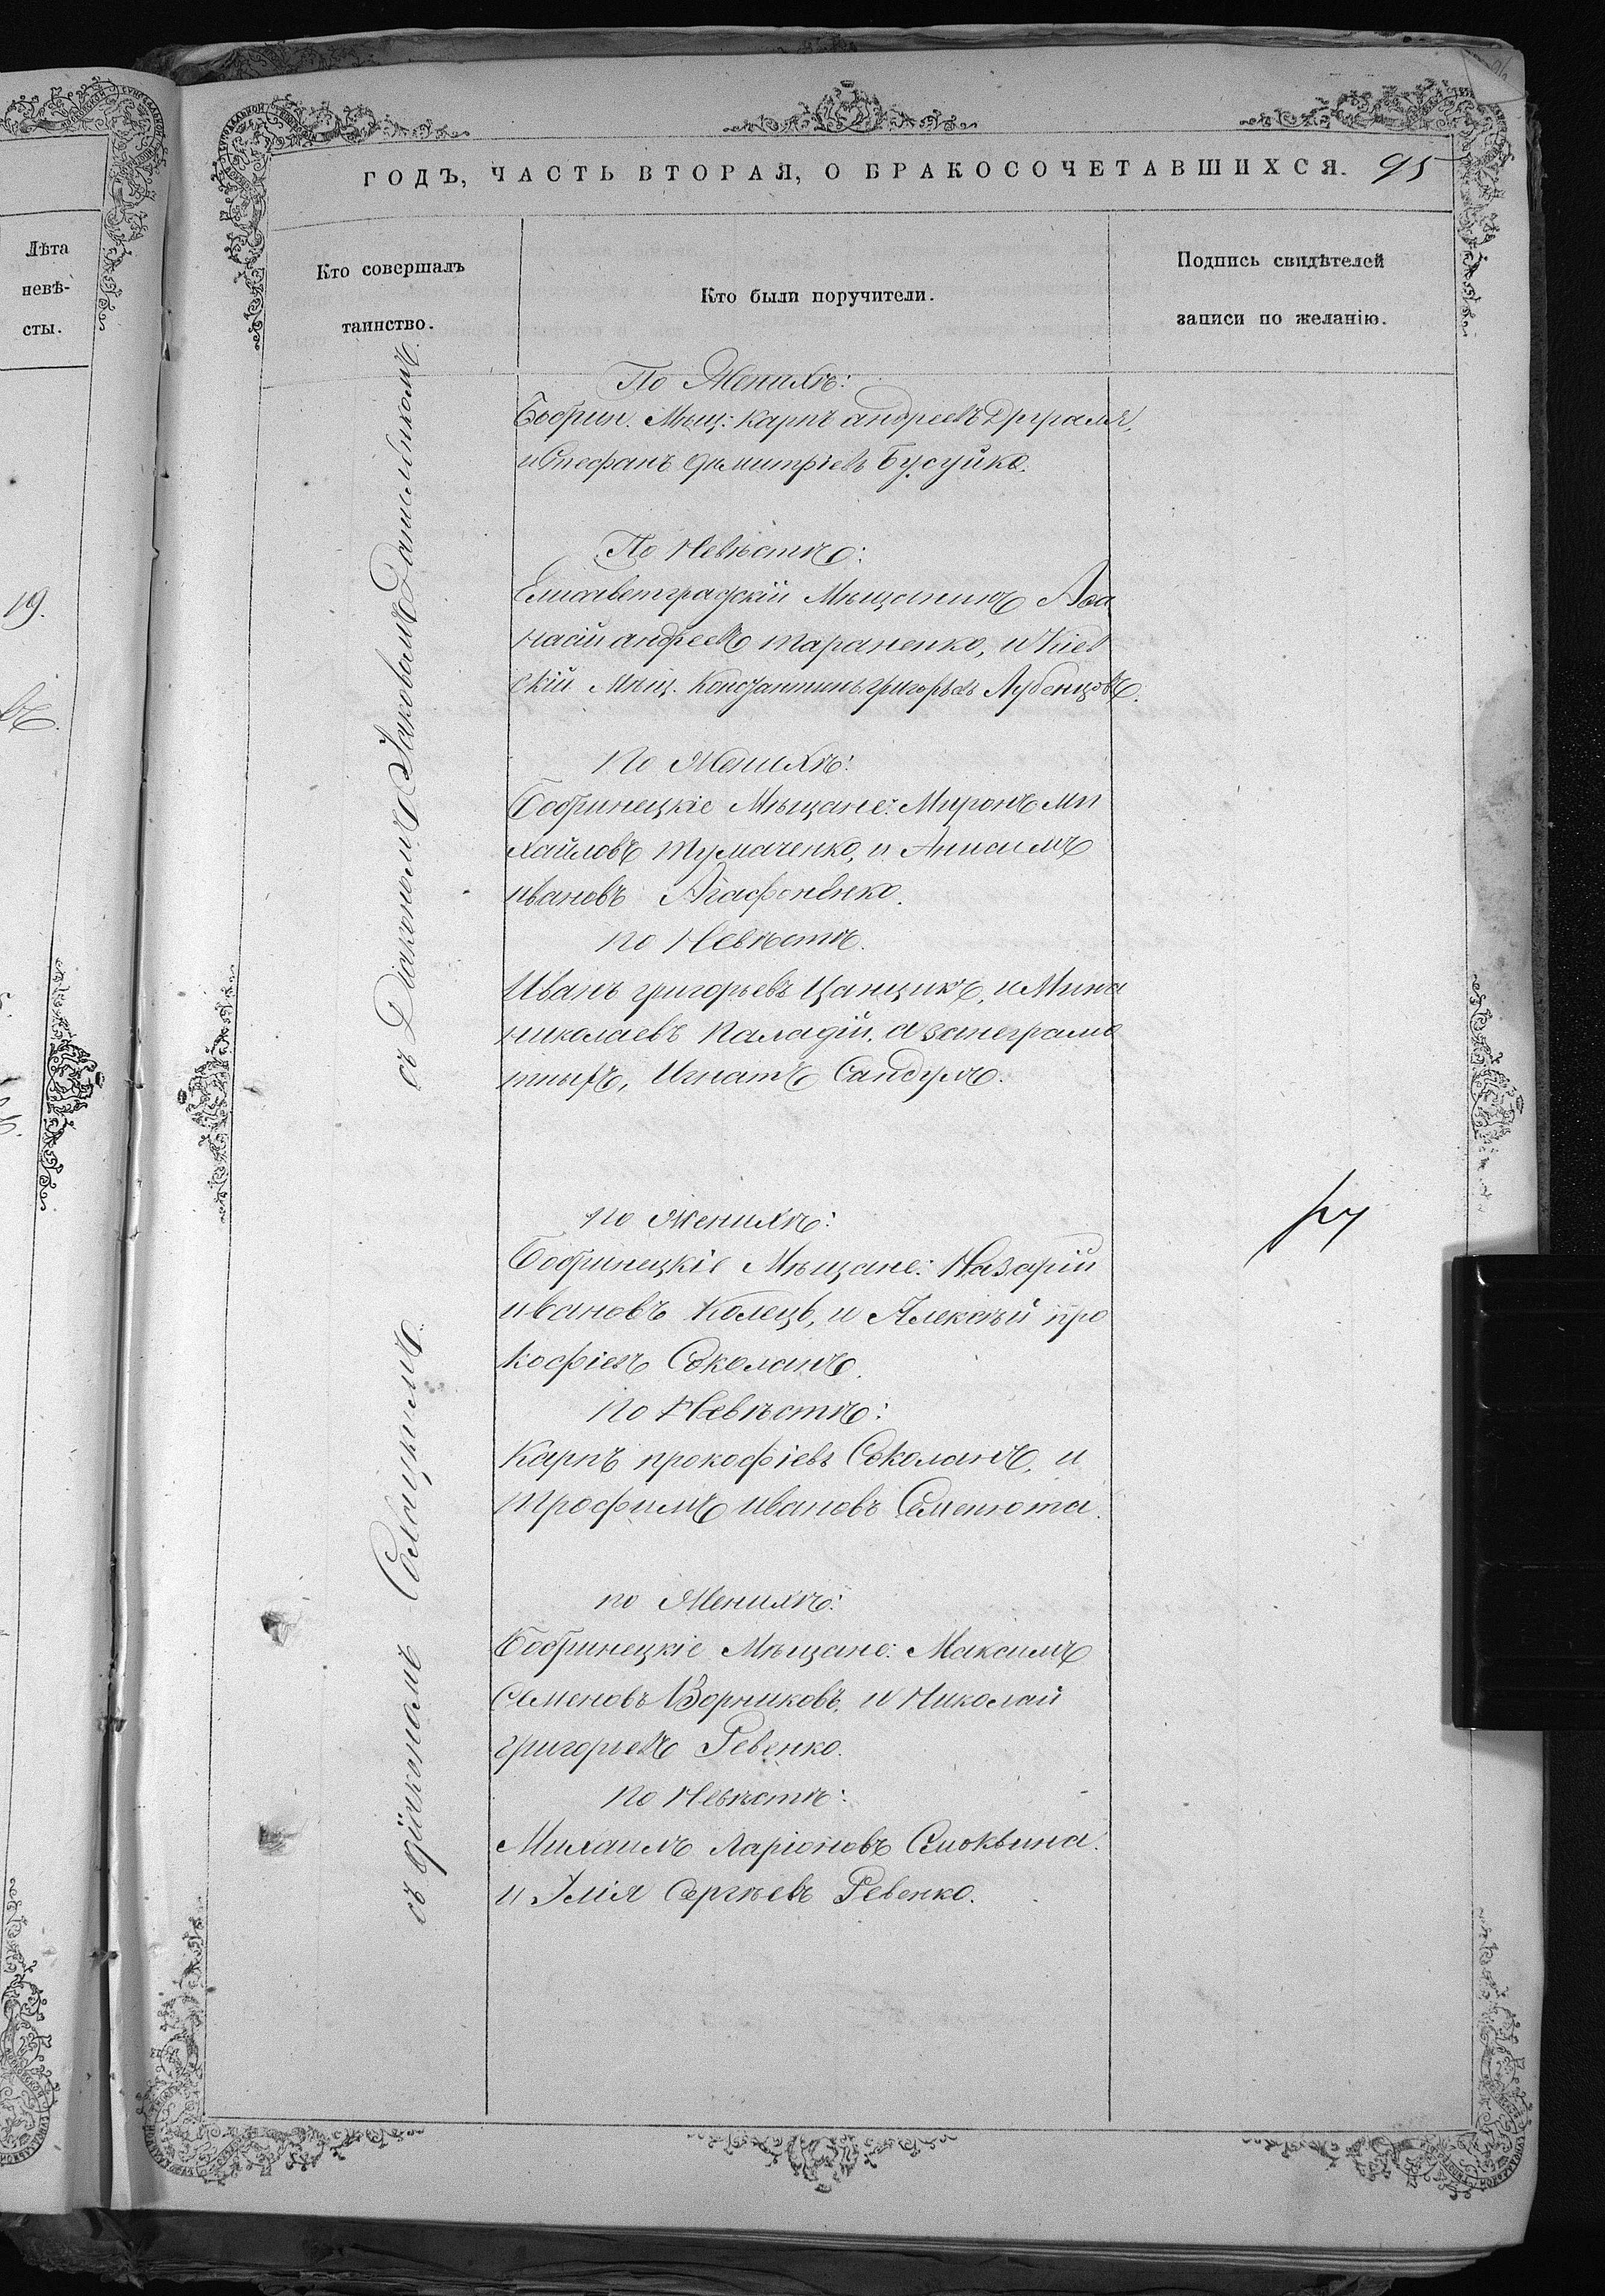 ГОДЪ, ЧАСТЬ ВТОРАЯ, О БРАКОСОЧЕТАВШИХСЯ. 95
Лѣта
невѣ-
сты.
19.
Кто совершалъ
таинство.
Кто были поручители.
Подпись свидѣтелей
записи по желанію.
съ Діакономъ Іаковомъ Данильикомъ.
По Женихѣ:
Бобрин. Мѣщ: Карпъ андреевъ
и Стефанъ Димитріевъ Бусуйко.
По Невѣстѣ:
Елисаветградскій Мѣщанинъ Аѳа
насій андреевъ тараненко, и Кіев
скій Мѣщ. Константинъ григорьевъ Лубенцовъ.
По Женихѣ:
Бобринецкіе Мѣщане: Миронъ ми
хайловъ тумаченко, и Анисимъ
ивановъ Агафоненко.
по Невѣстѣ.
Иванъ григорьевъ Цанцикъ, и Мина
николаевъ паладій, а за неграмо
тныхъ, Игнатъ Сандулъ.
по Женихѣ:
Бобринецкіе Мѣщане: Назарій
ивановъ Колецъ, и Алексѣй про
кофіевъ Соколанъ.
по Невѣстѣ:
Карпъ прокофіевъ Соколанъ, и
трофимъ ивановъ Семенюта.
съ діакономъ
по Женихѣ:
Бобринецкіе Мѣщане: Максимъ
Семеновъ Ворниковъ, и Николай
григорьевъ Ревенко.
по Невѣстѣ:
Милаимъ Ларіоновъ Смоквина
и Илія Сергѣевъ Ревенко.